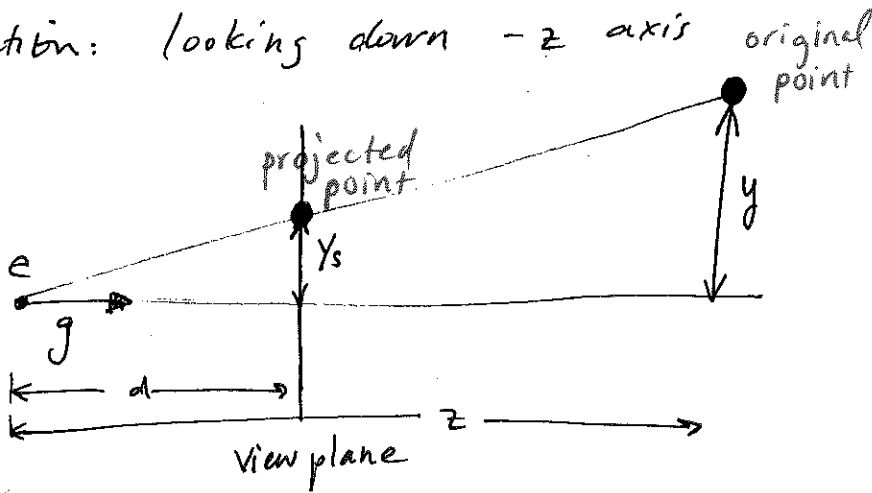 looking down -z axis
original
point
projected
point
y
e
ys
g
d
z
view plane